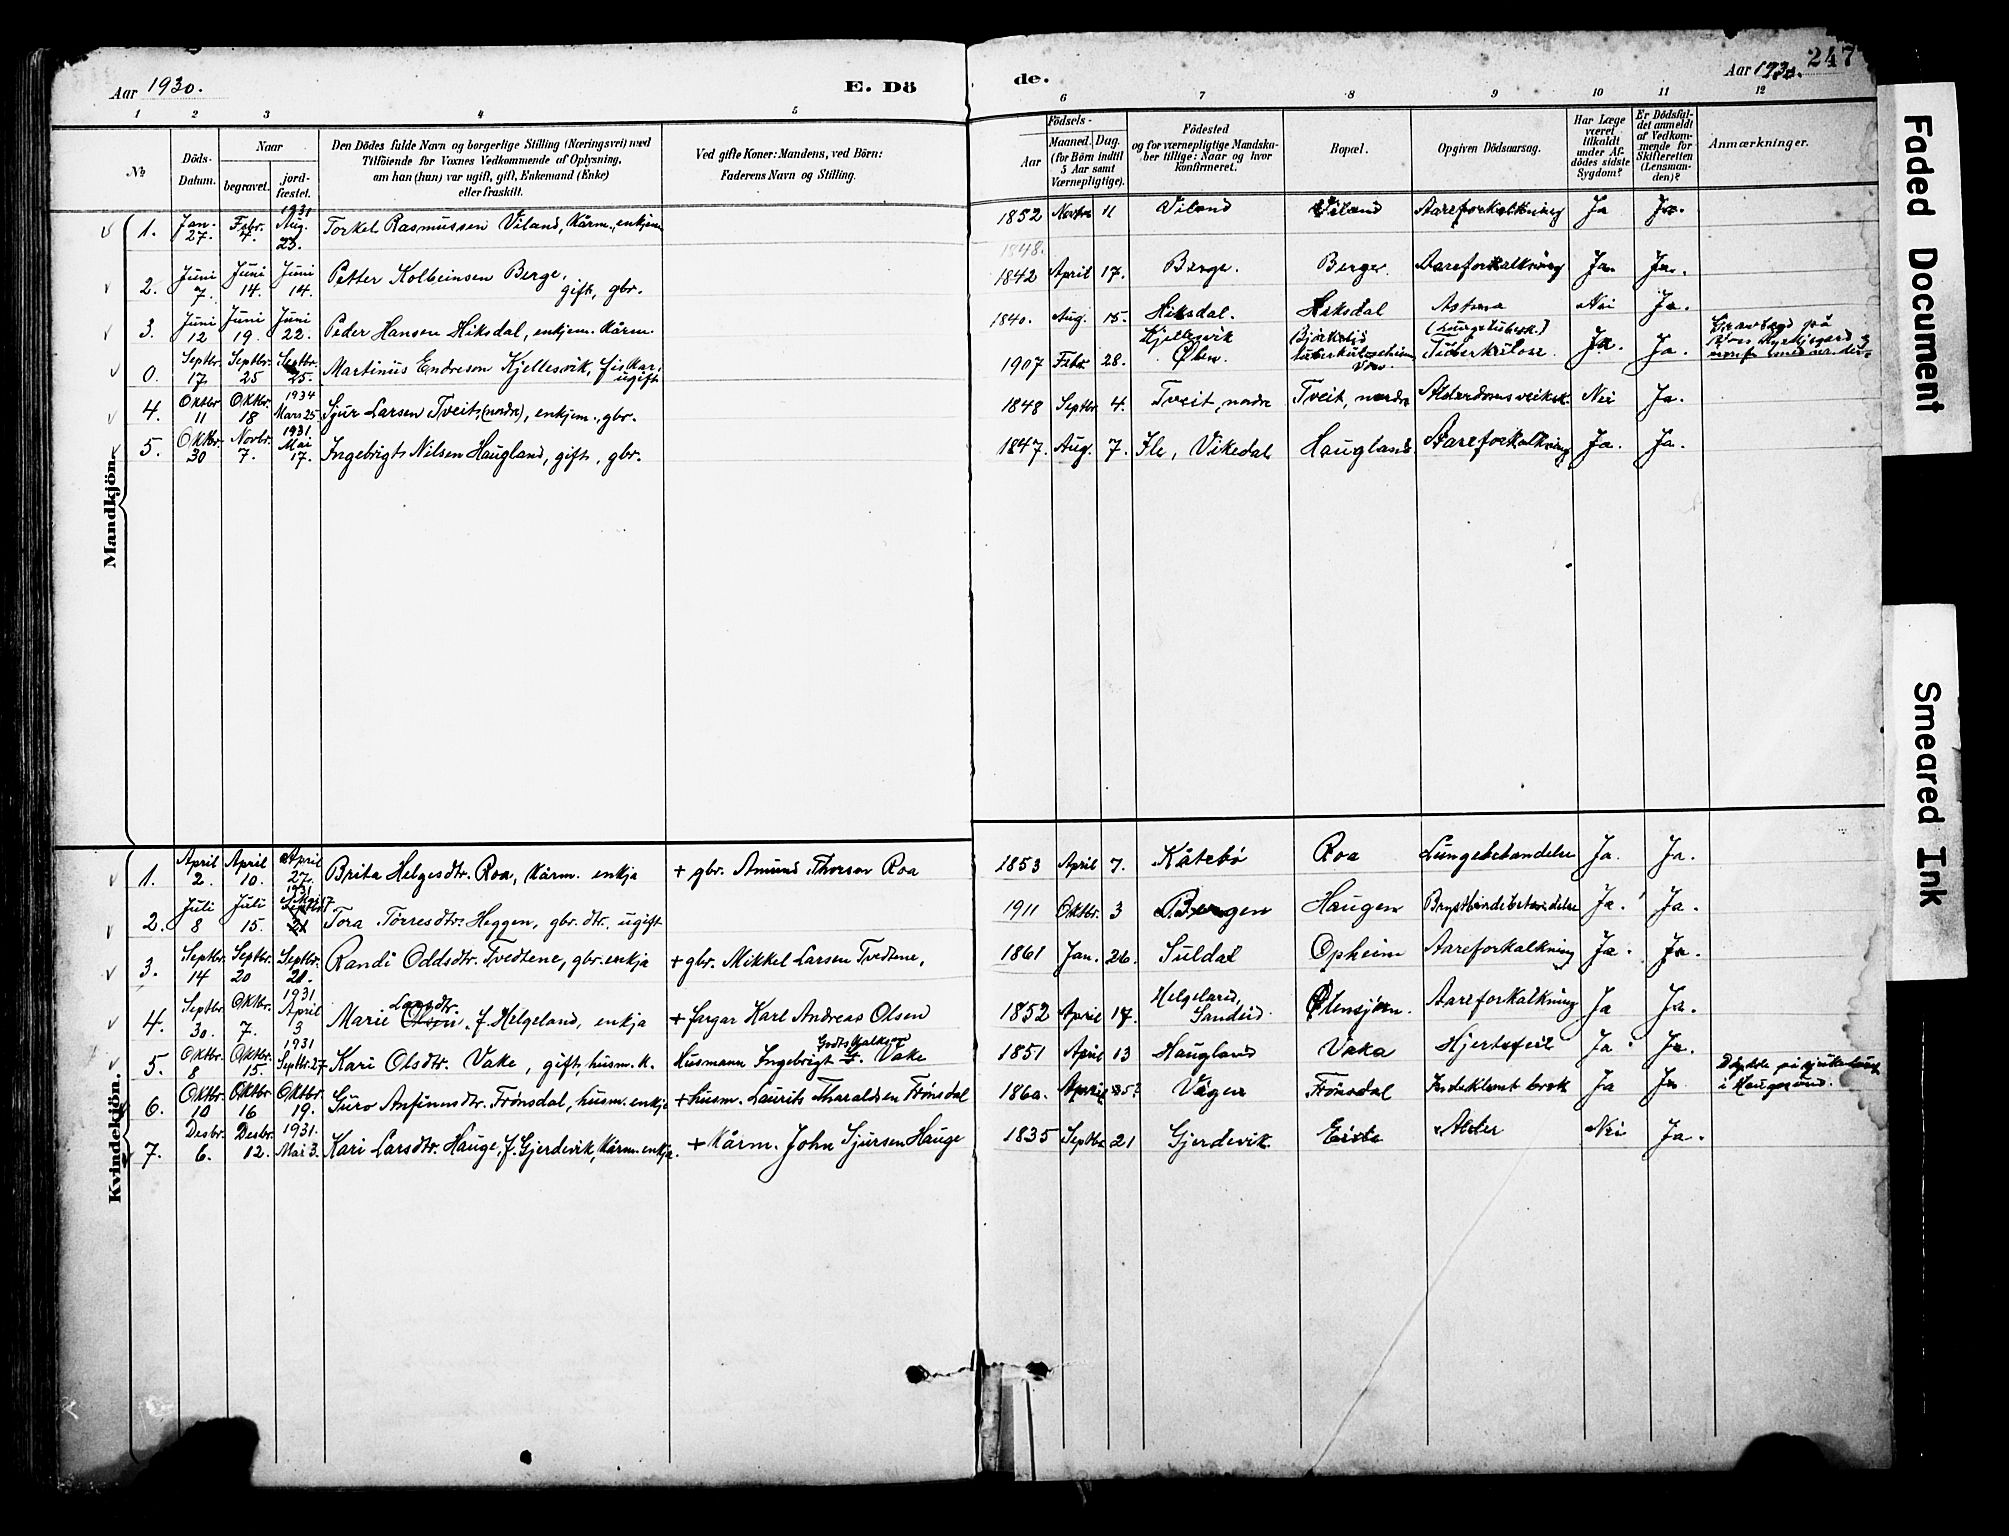 Aar 1930.
E. Dö
de.
Aar 1930.
247
1 2 3 4 5 6 7 8 9 10 11 12
№
Döds-Datum.
Naar
begravet.
jord-fæstet.
Den Dödes fulde Navn og borgerlige Stilling (Næringsvei) med
Tilföiende for Voxnes Vedkommende af Oplysning,
om han (hun) var ugift, gift, Enkemand (Enke)
eller fraskilt.
Ved gifte Koner: Mandens, ved Börn:
Faderens Navn og Stilling.
Födsels-
Aar
Maaned. Dag.
(for Börn indtil
5 Aar samt
Værnepligtige).
Födested
og for værnepligtige Mandska-
ber tillige: Naar og hvor
konfirmeret.
Bopæl.
Opgiven Dödsaarsag.
Har Læge
været
tilkaldt
under Af-
dödes sidste
Sygdom?
Er Dödsfal-
det anmeldt
af Vedkom-
mende for
Skifteretten
(Lensman-
den)?
Anmærkninger.
Mandkjön.
1. Jan. 27. Febr. 4. 1931 Aug. 23. Torkel Rasmussen Viland, kårm., enkjem 1852 Novbr 11 Viland Viland Aareforkalkning Ja Ja.
1848.
2. Juni 7. Juni 14. Juni 14. Petter Kolbeinsen Berge, gift, gbr. 1842 April 17. Berge. Berge. Aareforkalkning Ja. Ja.
3. Juni 12 Juni 19. Juni 22. Peder Hansen Hiksdal, enkjem. kårm. 1840. Aug. 15. Hiksdal. Hiksdal Astma Nei Ja.
0. Septbr. 17. Septbr. 25 Septbr. 25. Martinus Endreson Kjellesvik, fiskar, ugift 1907 Febr. 28. Kjellesvik Ølen. Bjørkelid (Lungetuberk.) Tuberkulose. Ja. Ja.
4. Oktbr. 11 Oktbr. 18 1934 Mars 25 Sjur Larsen Tveit (nordre), enkjem., gbr. 1848 Septbr. 4. Tveit, nordre Tveit, nordre Alderdomssveiksk. Nei Ja.
5. Oktbr. 30 Novbr. 7. 1931 Mai 17. Ingebrigt Nilsen Haugland, gift, gbr. 1847. Aug. 7. Ile, Vikedal Haugland. Aareforkalkning Ja. Ja.
Kvindekjön.
1. April 2. April 10. April 27. Brita Helgesdtr. Roa, kårm. enkja + gbr. Amund Thorsen Roa 1853 April 7. Kåtebø Roa Lungebetendelse Ja. Ja.
2. Juli 8 Juli 15. 1931 Mai 17 Tora Tørresdtr. Heggen, gbr. dtr. ugift 1911 Oktbr. 3 Bergen Haugen Brystbindebetendelse Ja. Ja.
3. Septbr. 14 Septbr. 20 Septbr. 21. Randi Oddsdtr. Tvedtene, gbr. enkja + gbr. Mikkel Larsen Tvedtene, 1861 Jan. 26. Suldal Opheim Aareforkalkning Ja. Ja.
4. Septbr 30. Oktbr. 7. 1931 April 3 Marie Larsdtr. Olsen, f. Helgeland, enkja + fargar Karl Andreas Olsen 1852 April 17. Helgeland, Sandeid. Ølensjøen. Aareforkalkning Ja Ja.
5. Oktbr. 8 Oktbr. 15. 1931 Septbr. 27 Kari Olsdtr. Vake, gift, husm. k. Husmann Ingebrigt Godtskalksen Vake 1851 April 13 Haugland Vaka Hjertefeil Ja. Ja.
6. Oktbr. 10 Oktbr 16 Oktbr. 19. Guro Anfinnsdtr. Frønsdal, husm. enkje + husm. Laurits Tharaldsen Frønsdal 1860. April 25? Vågen Frønsdal Indeklemt brok Ja Ja Døydde på sjukehuset i Haugesund.
7. Desbr. 6. Desbr. 12. 1931. Mai 3. Kari Larsdtr. Hauge, f. Gjerdevik, kårm. enkja. + Kårm. John Sjursen Hauge 1835 Septbr. 21 Gjerdevik Eide Alder Nei Ja.
Faded Document
Smeared Ink